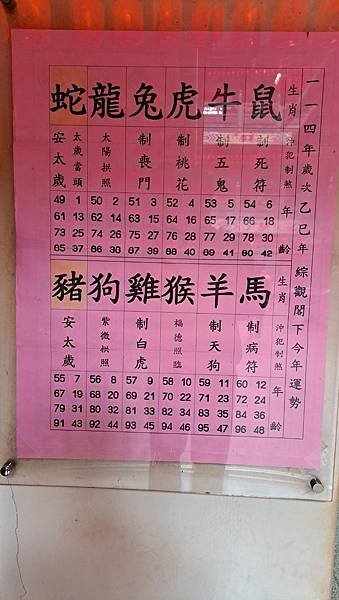 一一四年歲次乙巳年 綜觀閣下今年運勢
生肖 沖犯制煞 年齡
鼠
制死符
54 6
66 18
78 30
90 42
牛
制五鬼
53 5
65 17
77 29
89 41
虎
制桃花
52 4
64 16
76 28
88 40
兔
制喪門
51 3
63 15
75 27
87 39
龍
太陽拱照
50 2
62 14
74 26
86 38
蛇
太歲當頭
安太歲
49 1
61 13
73 25
85 37
生肖 沖犯制煞 年齡
馬
制病符
60 12
72 24
84 36
96 48
羊
制天狗
59 11
71 23
83 35
95 47
猴
福德照臨
58 10
70 22
82 34
94 46
雞
制白虎
57 9
69 21
81 33
93 45
狗
紫微拱照
56 8
68 20
80 32
92 44
豬
安太歲
55 7
67 19
79 31
91 43